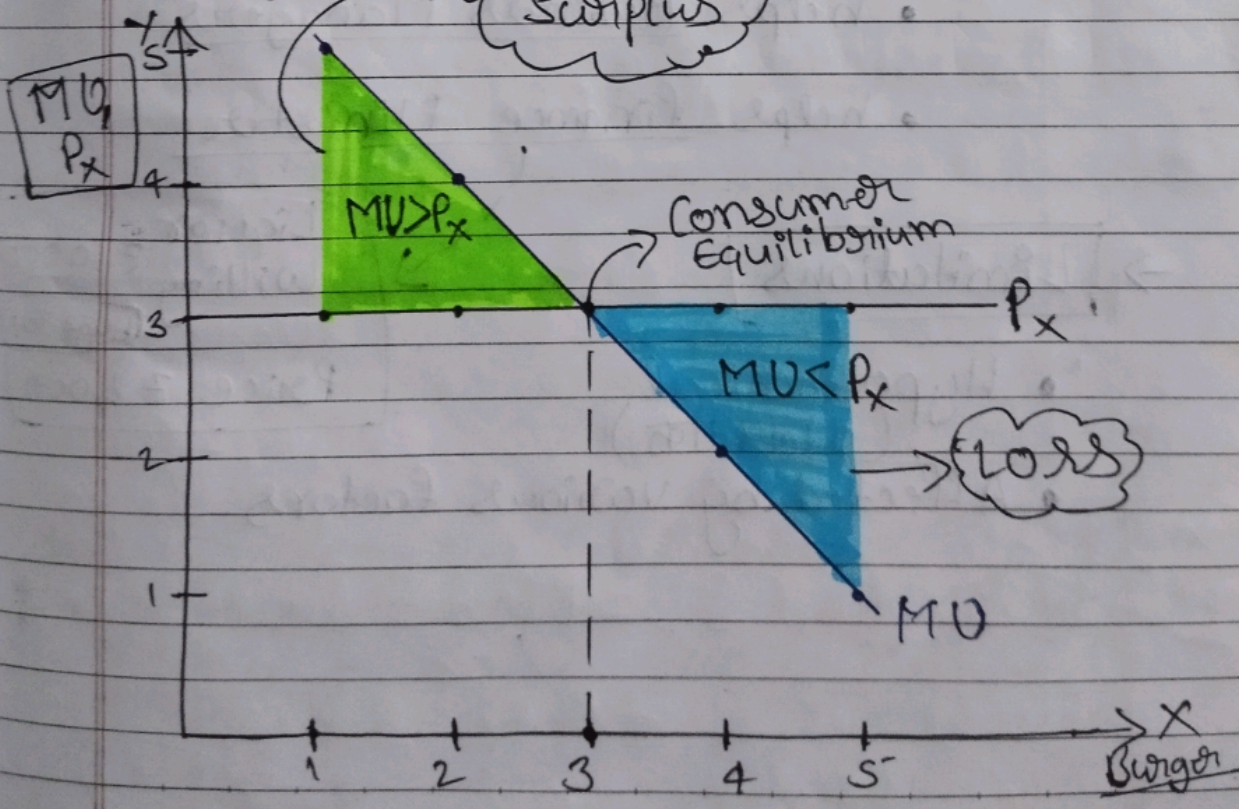 Surplus
Y
5
MU,
Px
4
MU>Px
Consumer
Equilibrium
3
Px
MU<Px
2
LOSS
1
MU
1 2 3 4 5
X
Burger